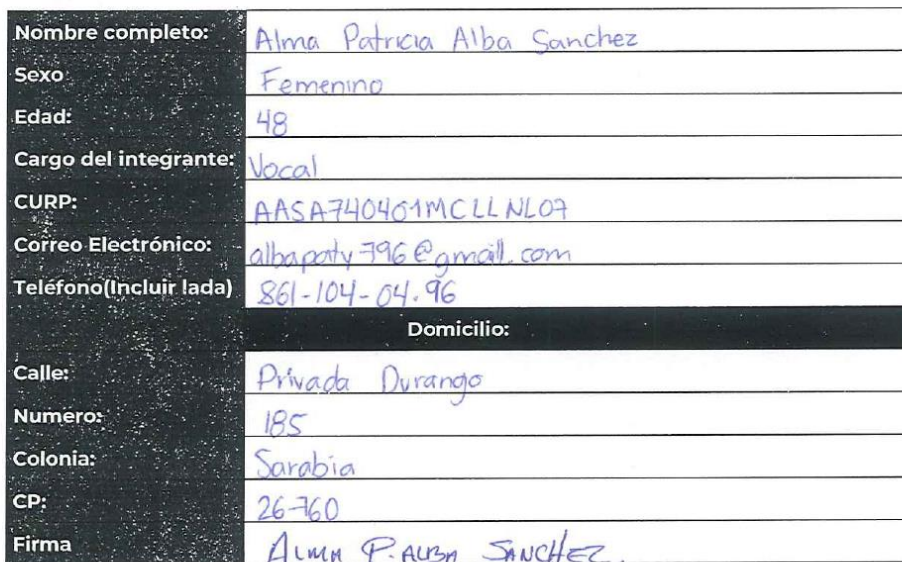 Nombre completo: Alma Patricia Alba Sanchez
Sexo Femenino
Edad: 48
Cargo del integrante: Vocal
CURP: AASA740401MCLLNL07
Correo Electrónico: albapaty796@gmail.com
Teléfono(Incluir lada) 861-104-04.96
Domicilio:
Calle: Privada Durango
Numero: 185
Colonia: Sarabia
CP: 26-760
Firma ALMA P. ALBA SANCHEZ.